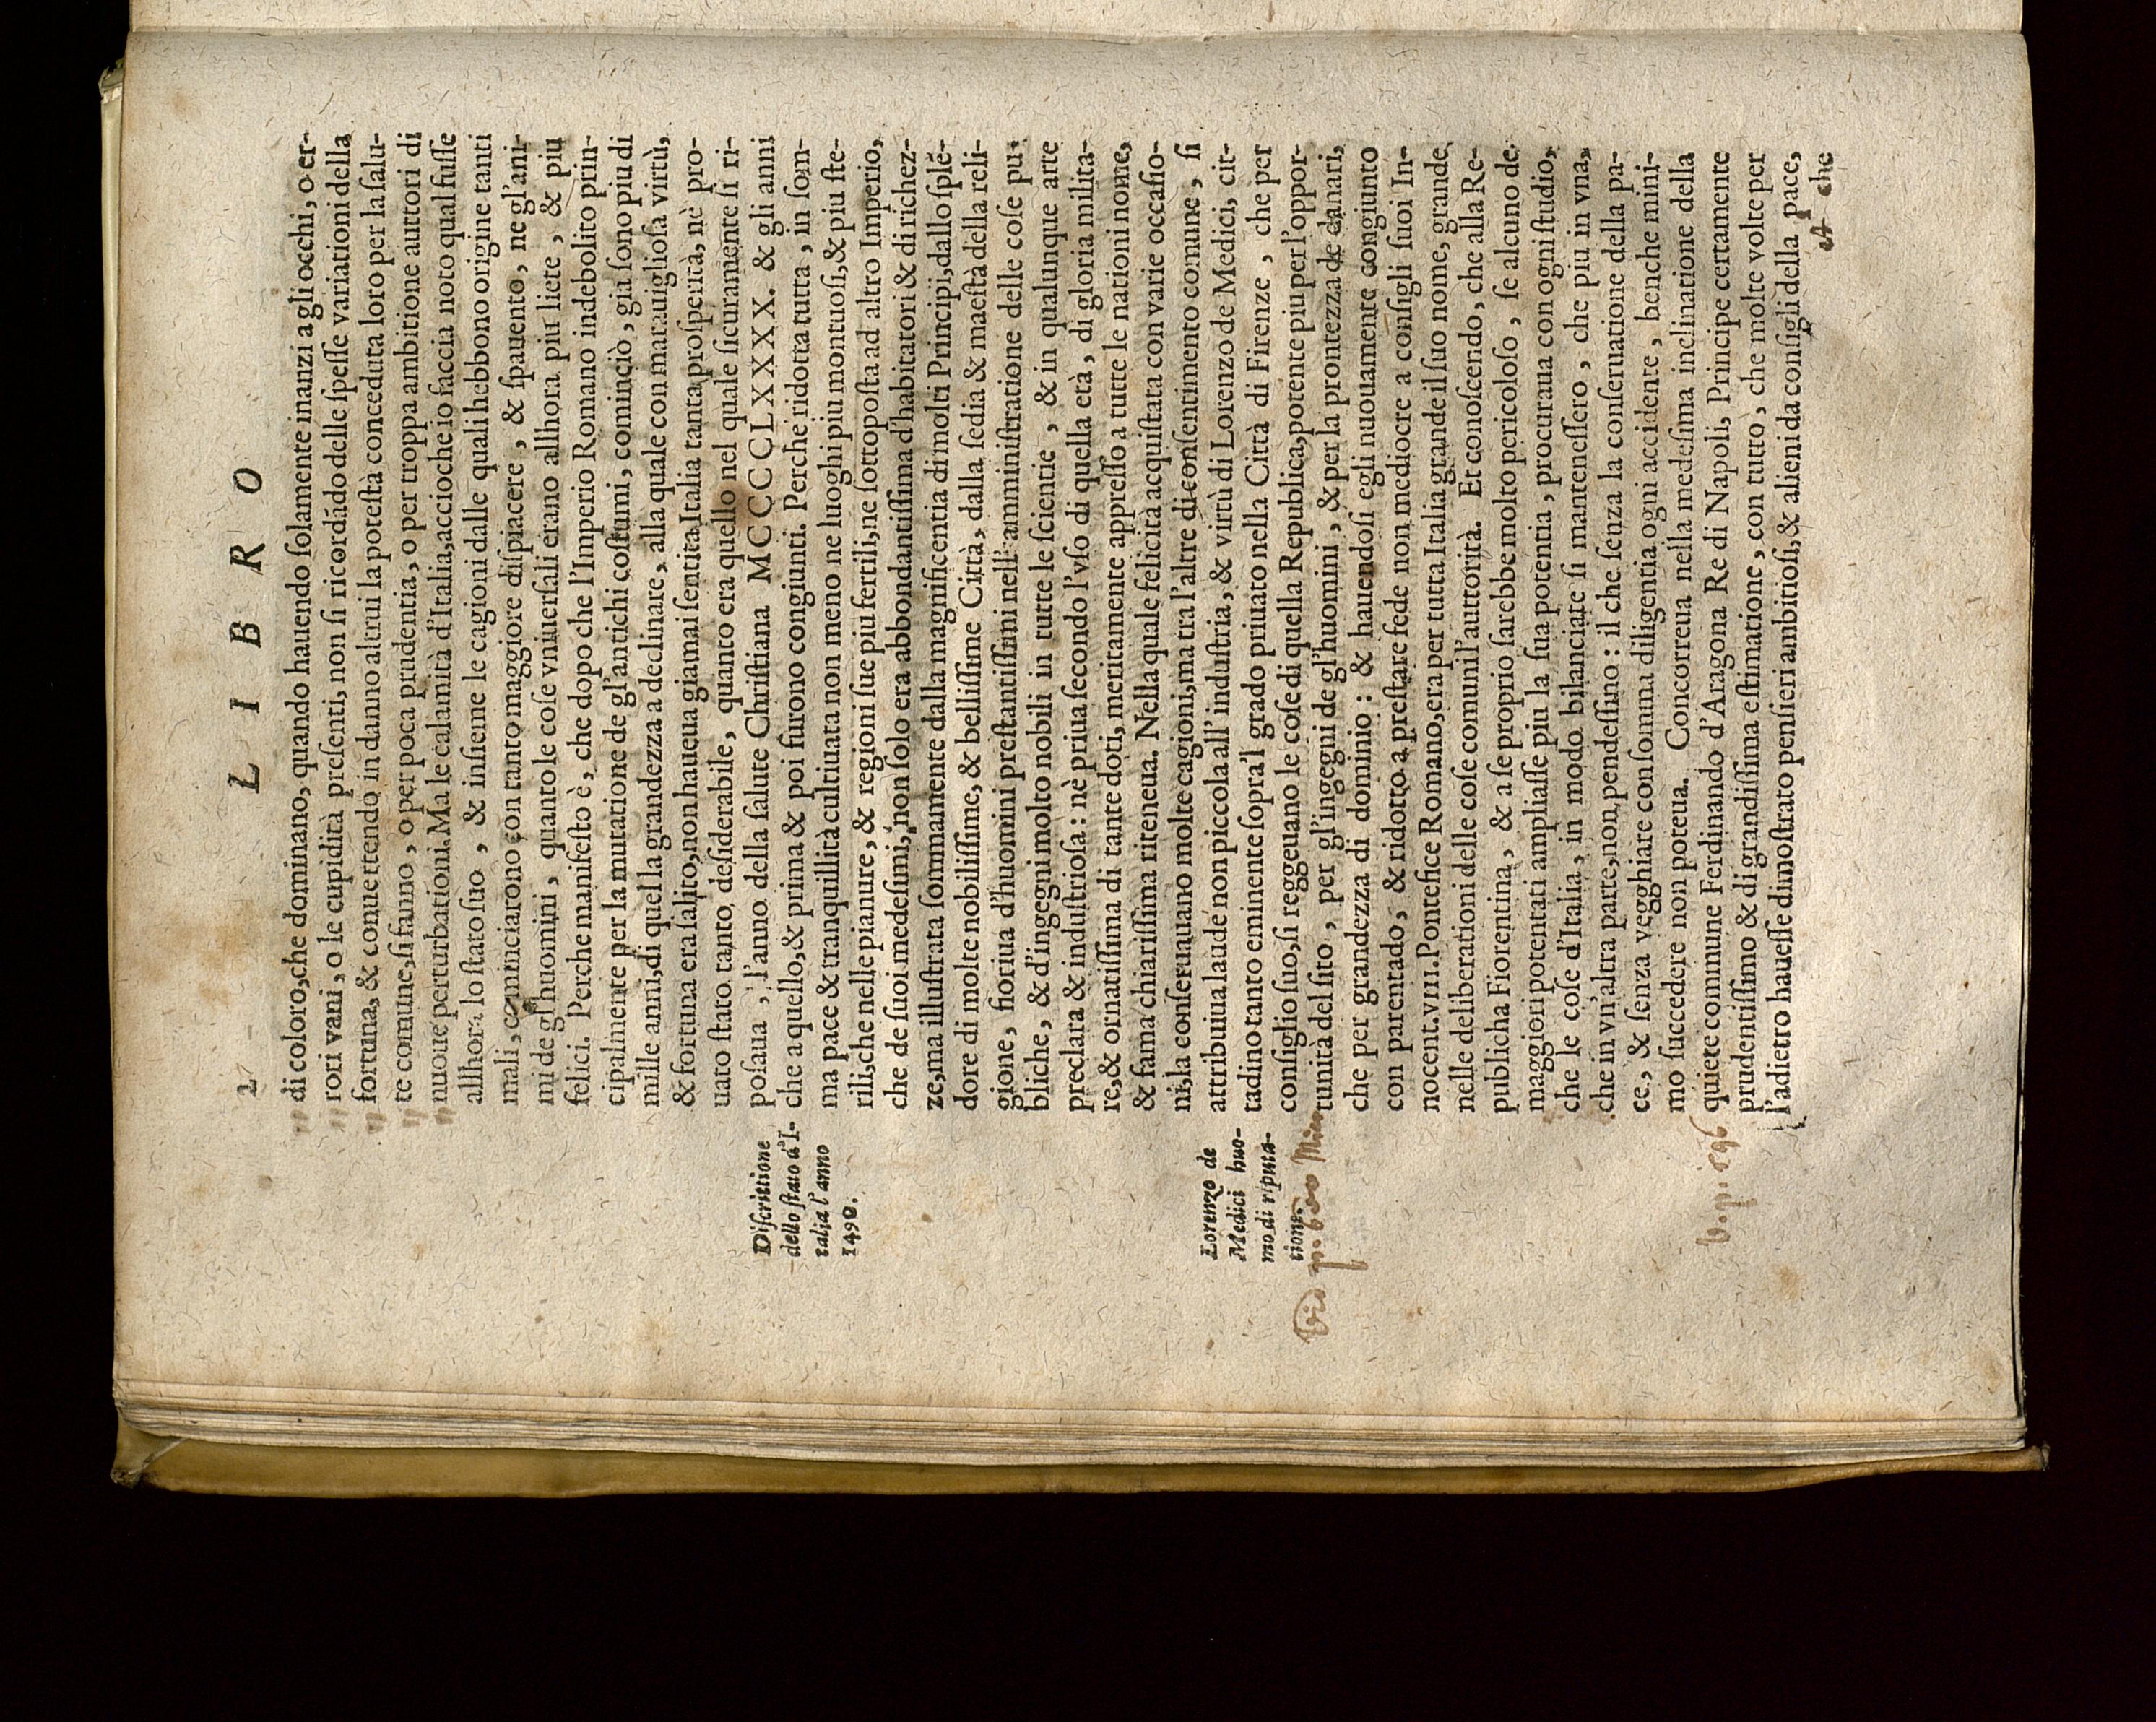 2 LIBRO
„ di coloro,che dominano, quando hauendo ſolamente inanzi a gli occhi, o er-
„ rori vani, o le cupidità preſenti, non ſi ricordãdo delle ſpeſſe variationi della
„ fortuna, & conuertendo in danno altrui la poteſtà conceduta loro per la ſalu-
„ te comune,ſi fanno, o per poca prudentia, o per troppa ambitione auttori di
„ nuoue perturbationi. Ma le calamità d'Italia,accioche io faccia noto qual fuſſe
allhora lo ſtato ſuo, & inſieme le cagioni dalle quali hebbono origine tanti
mali, cominciarono con tanto maggiore diſpiacere, & ſpauento, ne gl'ani-
mi de gl'huomini, quanto le coſe vniuerſali erano allhora piu liete, & piu
felici. Perche manifeſto è, che dopo che l'Imperio Romano indebolito prin-
cipalmente per la mutatione de gl'antichi coſtumi, cominciò, gia ſono piu di
mille anni,di quella grandezza a declinare, alla quale con marauiglioſa virtù,
& fortuna era ſalito,non haueua giamai ſentita Italia tanta proſperità, nè pro-
uato ſtato tanto deſiderabile, quanto era quello nel quale ſicuramente ſi ri-
poſaua, l'anno della ſalute Chriſtiana MCCCCLXXXX. & gli anni
che a quello,& prima & poi furono congiunti. Perche ridotta tutta, in ſom-
ma pace & tranquillità cultiuata non meno ne luoghi piu montuoſi,& piu ſte-
rili,che nelle pianure, & regioni ſue piu fertili,ne ſottopoſta ad altro Imperio,
che de ſuoi medeſimi, non ſolo era abbondantiſſima d'habitatori & di richez-
ze,ma illuſtrata ſommamente dalla magnificentia di molti Principi,dallo ſplẽ-
dore di molte nobiliſſime, & belliſſime Città, dalla ſedia & maeſtà della reli-
gione, fioriua d'huomini preſtantiſſimi nell'amminiſtratione delle coſe pu-
bliche, & d'ingegni molto nobili in tutte le ſcientie, & in qualunque arte
preclara & induſtrioſa: nè priua ſecondo l'vſo di quella età, di gloria milita-
re,& ornatiſſima di tante doti, meritamente appreſſo a tutte le nationi nome,
& fama chiariſſima riteneua. Nella quale felicità acquiſtata con varie occaſio-
ni,la conſeruauano molte cagioni,ma tra l'altre di conſentimento comune, ſi
attribuiua laude non piccola all'induſtria, & virtù di Lorenzo de Medici, cit-
tadino tanto eminente ſopra'l grado priuato nella Città di Firenze, che per
conſiglio ſuo,ſi reggeuano le coſe di quella Republica,potente piu per l'oppor-
tunità del ſito, per gl'ingegni de gl'huomini, & per la prontezza de danari,
che per grandezza di dominio: & hauendoſi egli nuouamente congiunto
con parentado, & ridotto a preſtare fede non mediocre a conſigli ſuoi In-
nocent.VIII.Pontefice Romano,era per tutta Italia grande il ſuo nome, grande
nelle deliberationi delle coſe comuni l'auttorità. Et conoſcendo, che alla Re-
publicha Fiorentina, & a ſe proprio ſarebbe molto pericoloſo, ſe alcuno de
maggiori potentati ampliaſſe piu la ſua potentia, procuraua con ogni ſtudio,
che le coſe d'Italia, in modo bilanciate ſi manteneſſero, che piu in vna,
che in vn'altra parte,non pendeſſino: il che ſenza la conſeruatione della pa-
ce, & ſenza vegghiare con ſomma diligentia ogni accidente, benche mini-
mo ſuccedere non poteua. Concorreua nella medeſima inclinatione della
quiete commune Ferdinando d'Aragona Re di Napoli, Principe certamente
prudentiſſimo & di grandiſſima eſtimatione, con tutto, che molte volte per
l'adietro haueſſe dimoſtrato penſieri ambitioſi,& alieni da conſigli della pace,
et che
Diſcrittione
dello ſtato d'I-
talia l'anno
1490.
Lorenzo de
Medici huo-
mo di riputa-
tione.